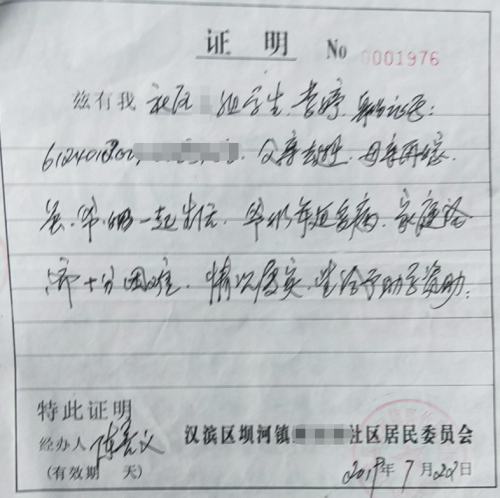 证 明 No 0001976
兹有我社区 组学生,李婷,身份证号:
612401 父亲 ,母亲再嫁.
爷.奶一起生活. 爷奶年迈多病,家庭经
济十分困难. 情况属实.望给予助学资助.
特此证明
经办人 陈 义 汉滨区坝河镇 社区居民委员会
(有效期 天) 2019年7月22日